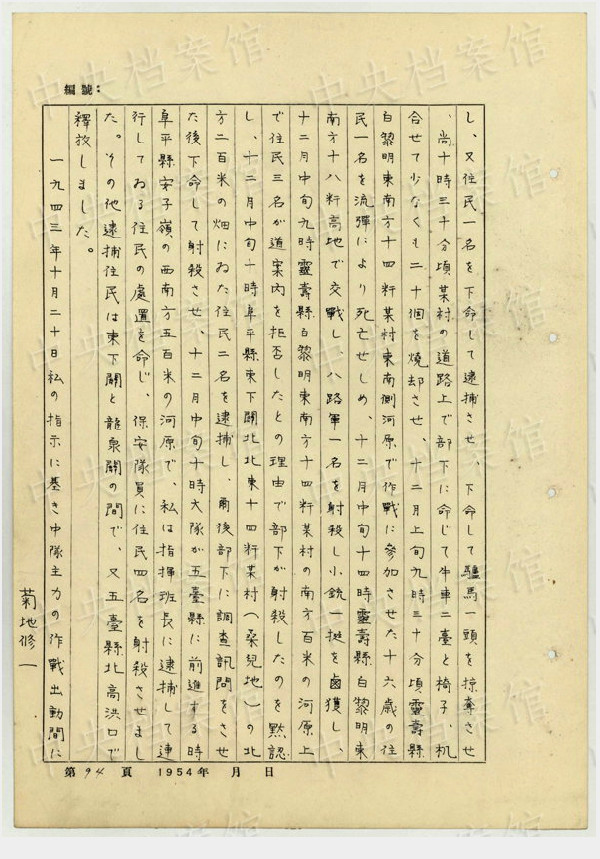 編號：
し、又住民一名を下命して逮捕させ、下命して驢馬一頭を掠奪させ
、尚十時三十分頃某村の道路上で部下に命じて牛車二臺と椅子、机
合せて少なくも二十個を燒却させ、十二月上旬九時三十分頃靈壽縣
白黎明東南方十四粁某村東南側河原で作戰に參加させた十六歳の住
民一名を流彈により死亡せしめ、十二月中旬十四時靈壽縣白黎明東
南方十八粁高地で交戰し、八路軍一名を射殺し小銃一挺を鹵獲し、
十二月中旬九時靈壽縣白黎明東南方十四粁某村の南方百米の河原上
で住民三名が道案内を拒否したとの理由で部下が射殺したのを默認
し、十二月中旬一時阜平縣東下關北北東十四粁某村（桑兒地）の北
方二百米の畑にゐた住民二名を逮捕し、爾後部下に調査訊問をさせ
た後下命して射殺させ、十二月中旬十時大隊が五臺縣に前進する時
阜平縣安子嶺の西南方五百米の河原で、私は指揮班長に逮捕して連
行してゐる住民の處置を命じ、保安隊員に住民四名を射殺させまし
た。その他逮捕住民は東下關と龍泉關の間で、又五臺縣北高洪口で
釋放しました。
一九四三年十月二十日私の指示に基き中隊主力の作戰出動間に
菊地修一
第94頁 1954年 月 日
中央档案馆